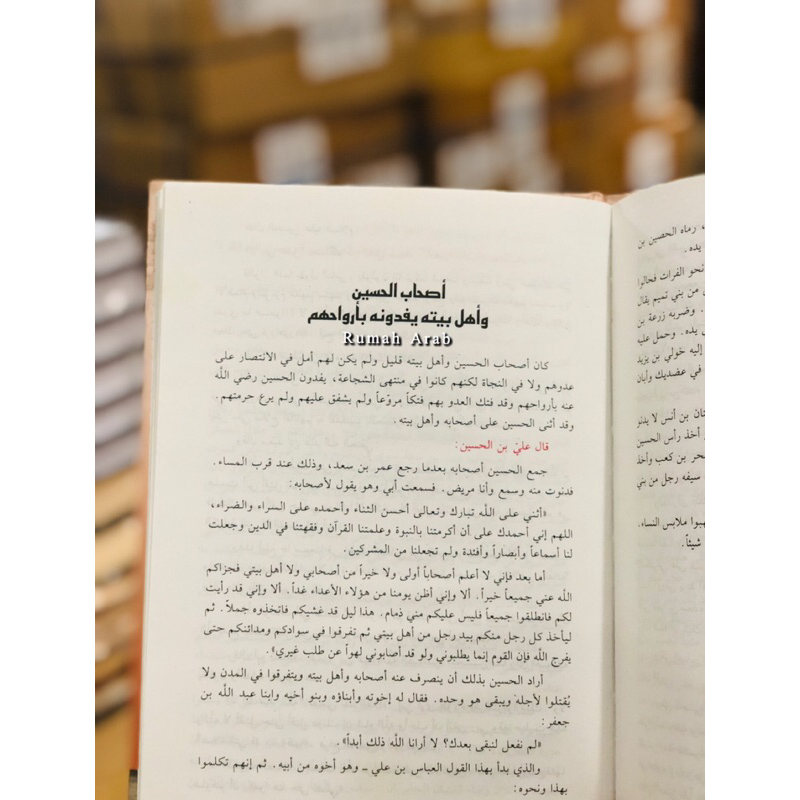 أصحاب الحسين
وأهل بيته يفدونه بأرواحهم
Rumah Arab
كان أصحاب الحسين وأهل بيته قليل ولم يكن لهم أمل في الانتصار على
عدوهم ولا في النجاة لكنهم كانوا في منتهى الشجاعة، يفدون الحسين رضي اللّه
عنه بأرواحهم وقد فتك العدو بهم فتكاً مروّعاً ولم يشفق عليهم ولم يرع حرمتهم.
وقد أثنى الحسين على أصحابه وأهل بيته.
قال عليّ بن الحسين:
جمع الحسين أصحابه بعدما رجع عمر بن سعد، وذلك عند قرب المساء.
فدنوت منه وسمع وأنا مريض. فسمعت أبي وهو يقول لأصحابه:
«أثني على اللّه تبارك وتعالى أحسن الثناء وأحمده على السراء والضراء،
اللهم إني أحمدك على أن أكرمتنا بالنبوة وعلمتنا القرآن وفقهتنا في الدين وجعلت
لنا أسماعاً وأبصاراً وأفئدة ولم تجعلنا من المشركين.
أما بعد فإني لا أعلم أصحاباً أولى ولا خيراً من أصحابي ولا أهل بيتي فجزاكم
اللّه عني جميعاً خيراً. ألا وإني أظن يومنا من هؤلاء الأعداء غداً. ألا وإني قد رأيت
لكم فانطلقوا جميعاً فليس عليكم مني ذمام. هذا ليل قد غشيكم فاتخذوه جملاً. ثم
ليأخذ كل رجل منكم بيد رجل من أهل بيتي ثم تفرقوا في سوادكم ومدائنكم حتى
يفرج اللّه فإن القوم إنما يطلبوني ولو قد أصابوني لهوا عن طلب غيري».
أراد الحسين بذلك أن ينصرف عنه أصحابه وأهل بيته ويتفرقوا في المدن ولا
يُقتلوا لأجله ويبقى هو وحده. فقال له إخوته وأبناؤه وبنو أخيه وابنا عبد اللّه بن
جعفر:
«لم نفعل لنبقى بعدك؟ لا أرانا اللّه ذلك أبداً».
والذي بدأ بهذا القول العباس بن علي ـ وهو أخوه من أبيه. ثم إنهم تكلموا
بهذا ونحوه:
، رماه الحصين بن
يده.
نحو الفرات فحالوا
من بني تميم يقال
. وضربه زرعة بن
يده. وحمل عليه
إليه خولي بن يزيد
في عضديك وأبان
بن أنس لا يدنو
أخذ رأس الحسين
بن كعب وأخذ
سيفه رجل من بني
ملابس النساء.
شيئاً.